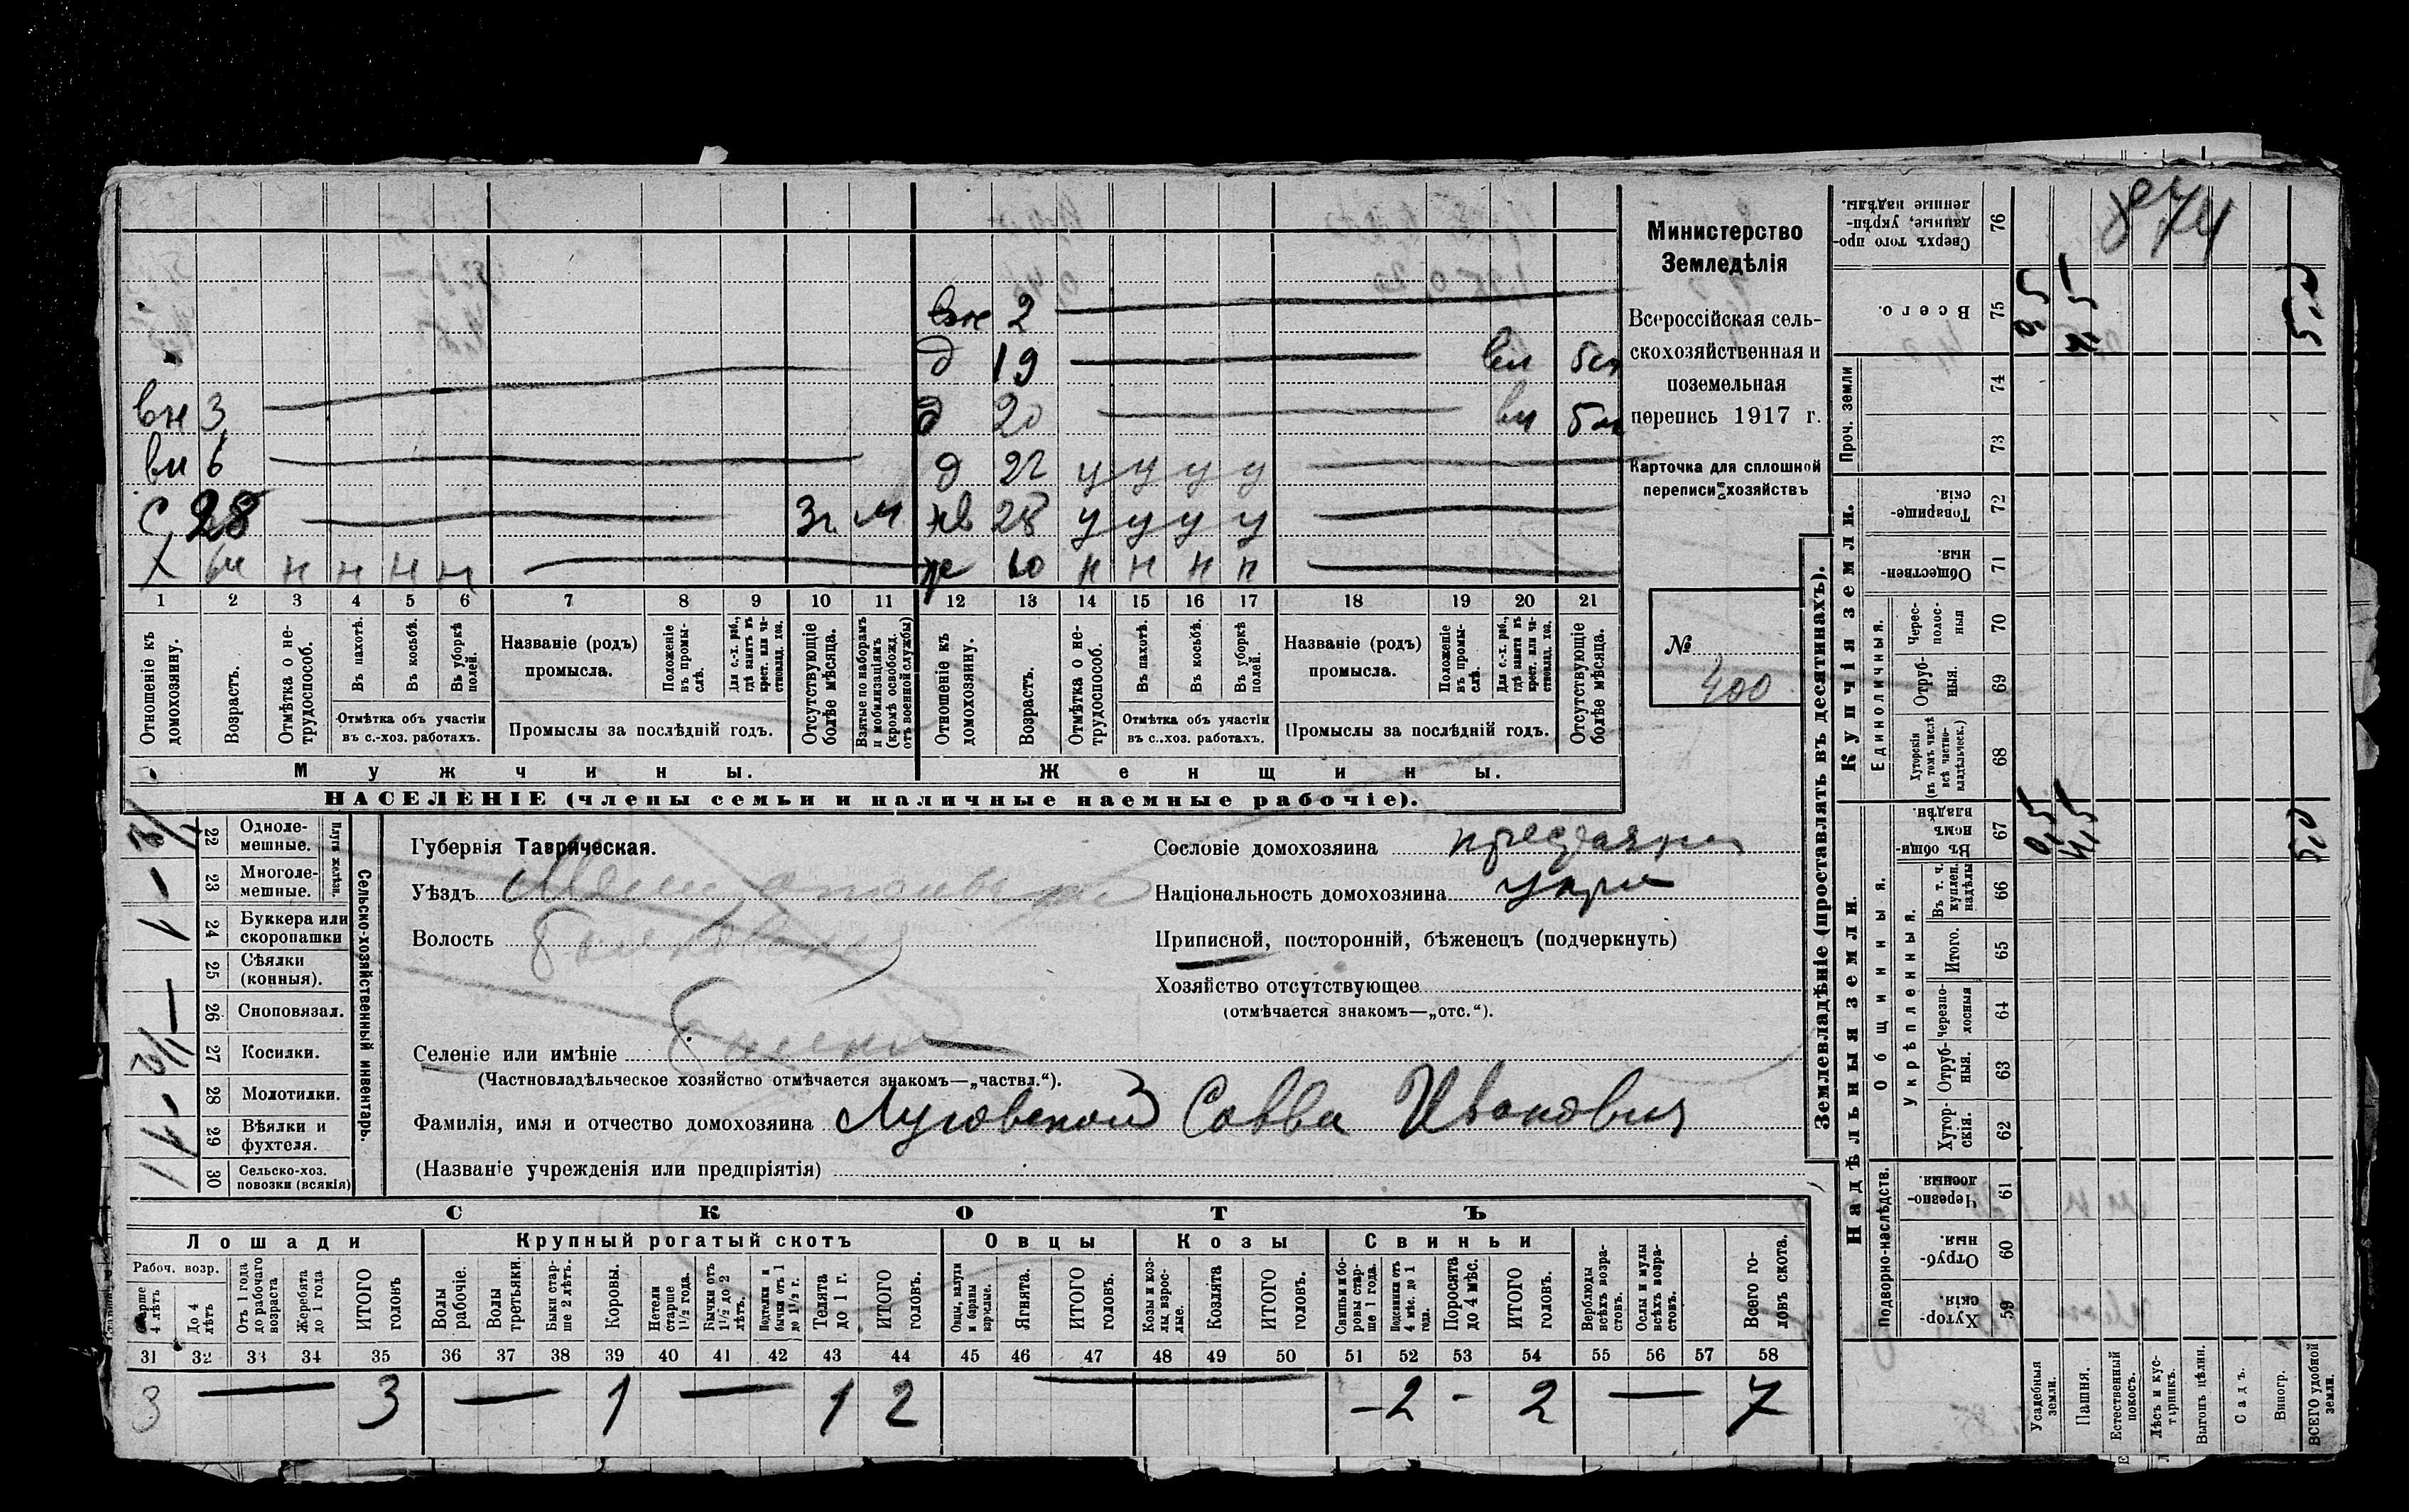 874
Министерство
Земледѣлія
Всероссійская сель-
скохозяйственная и
поземельная
перепись 1917 г.
Карточка для сплошной
переписи хозяйствъ
№
400
вн 2
д 19 5м
вн 3 д 20 5м
вн 6 д 22 у у у у
с 28 3г м нв 28 у у у у
х н н н н ж н н н н
1 2 3 4 5 6 7 8 9 10 11 12 13 14 15 16 17 18 19 20 21
Отношеніе къ домохозяину.
Возрастъ.
Отмѣтка о не-трудоспособ.
Въ пахотѣ.
Въ косьбѣ.
Въ уборкѣ полей.
Отмѣтка объ участіи
въ с.-хоз. работахъ.
Названіе (родъ)
промысла.
Положеніе въ промы-слѣ.
Для с.-х. раб., гдѣ занятъ въ крест. или ча-стновлад. хоз.
Промыслы за послѣдній годъ.
Отсутствующіе болѣе мѣсяца.
Взятые по наборамъ и мобилизаціямъ (кромѣ освобожд. отъ военной службы)
Отношеніе къ домохозяину.
Возрастъ.
Отмѣтка о не-трудоспособ.
Въ пахотѣ.
Въ косьбѣ.
Въ уборкѣ полей.
Отмѣтка объ участіи
въ с..хоз. работахъ.
Названіе (родъ)
промысла.
Положеніе въ промы-слѣ.
Для с.-х. раб., гдѣ занята въ крест. или ча-стновлад. хоз.
Промыслы за послѣдній годъ.
Отсутствующіе болѣе мѣсяца.
Мужчины. Женщины.
НАСЕЛЕНІЕ (члены семьи и наличные наемные рабочіе).
Сельско-хозяйственный инвентарь.
Плуги желѣзн.
22 Одноле-мешные.
23 Многоле-мешные.
24 Буккера или скоропашки
25 Сѣялки (конныя).
26 Сноповязал.
27 Косилки.
28 Молотилки.
29 Вѣялки и фухтеля.
30 Сельско-хоз. повозки (всякія)
Губернія Таврическая.
Уѣздъ
Волость
Селеніе или имѣніе
(Частновладѣльческое хозяйство отмѣчается знакомъ—„частвл.“).
Сословіе домохозяина
Національность домохозяина укр
Приписной, посторонній, бѣженецъ (подчеркнуть)
Хозяйство отсутствующее
(отмѣчается знакомъ—„отс.“).
Фамилія, имя и отчество домохозяина Луговской Савва Иванович
(Названіе учрежденія или предпріятія)
СКОТЪ
Лошади Крупный рогатый скотъ Овцы Козы Свиньи
Рабоч. возр.
Старше 4 лѣтъ
До 4 лѣтъ
Отъ 1 года до рабочаго возраста
Жеребята до 1 года
ИТОГО головъ
Волы рабочіе.
Волы третьяки.
Быки стар-ше 2 лѣтъ.
Коровы.
Нетели старше 1½ года.
Бычки отъ 1½ до 2 лѣтъ.
Подтелки и бычки отъ 1 до 1½ г.
Телята до 1 г.
ИТОГО головъ.
Овцы, валухи и бараны взрослые.
Ягнята.
ИТОГО головъ.
Козы и коз-лы, взрос-лые.
Козлята
ИТОГО головъ.
Свиньи и бо-ровы стар-ше 1 года.
Подсвинки отъ 4 мѣс. до 1 года.
Поросята до 4 мѣс.
ИТОГО головъ.
Верблюды всѣхъ возра-стовъ.
Ослы и мулы всѣхъ возра-стовъ.
Всего го-ловъ скота.
31 32 33 34 35 36 37 38 39 40 41 42 43 44 45 46 47 48 49 50 51 52 53 54 55 56 57 58
3 — 3 — 1 — 1 2 — – 2 - 2 — 7
Землевладѣніе (проставлять въ десятинахъ).
Надѣльныя земли.
Купчія земли.
Проч. земли
Подворно-наслѣдств.
Общинныя.
Укрѣпленныя.
Единоличныя.
Хутор-скія. 59
Отруб-ныя. 60
Черезпо-лосныя. 61
Хутор-скія. 62
Отруб-ныя. 63
черезпо-лосныя 64
Итого. 65
Въ т. ч. куплен. надѣлы 66
Въ общи-номъ владѣн. 67
Хуторскія (въ томъ числѣ всѣ частно-владѣльческ.) 68
Отруб-ныя. 69
Черес-полос-ныя 70
Обществен-ныя. 71
Товарище-скія. 72
73
74
Всего. 75
Сверхъ того про-данные, укрѣп-ленные надѣлы. 76
Усадебныя земли. 0,5 0,5
Пашня. 4,5 4,5
Естественный покосъ.
Лѣсъ и кус-тарникъ.
Выгонъ цѣлин.
Садъ.
Виногр.
ВСЕГО удобной земли. 5,0 5,0